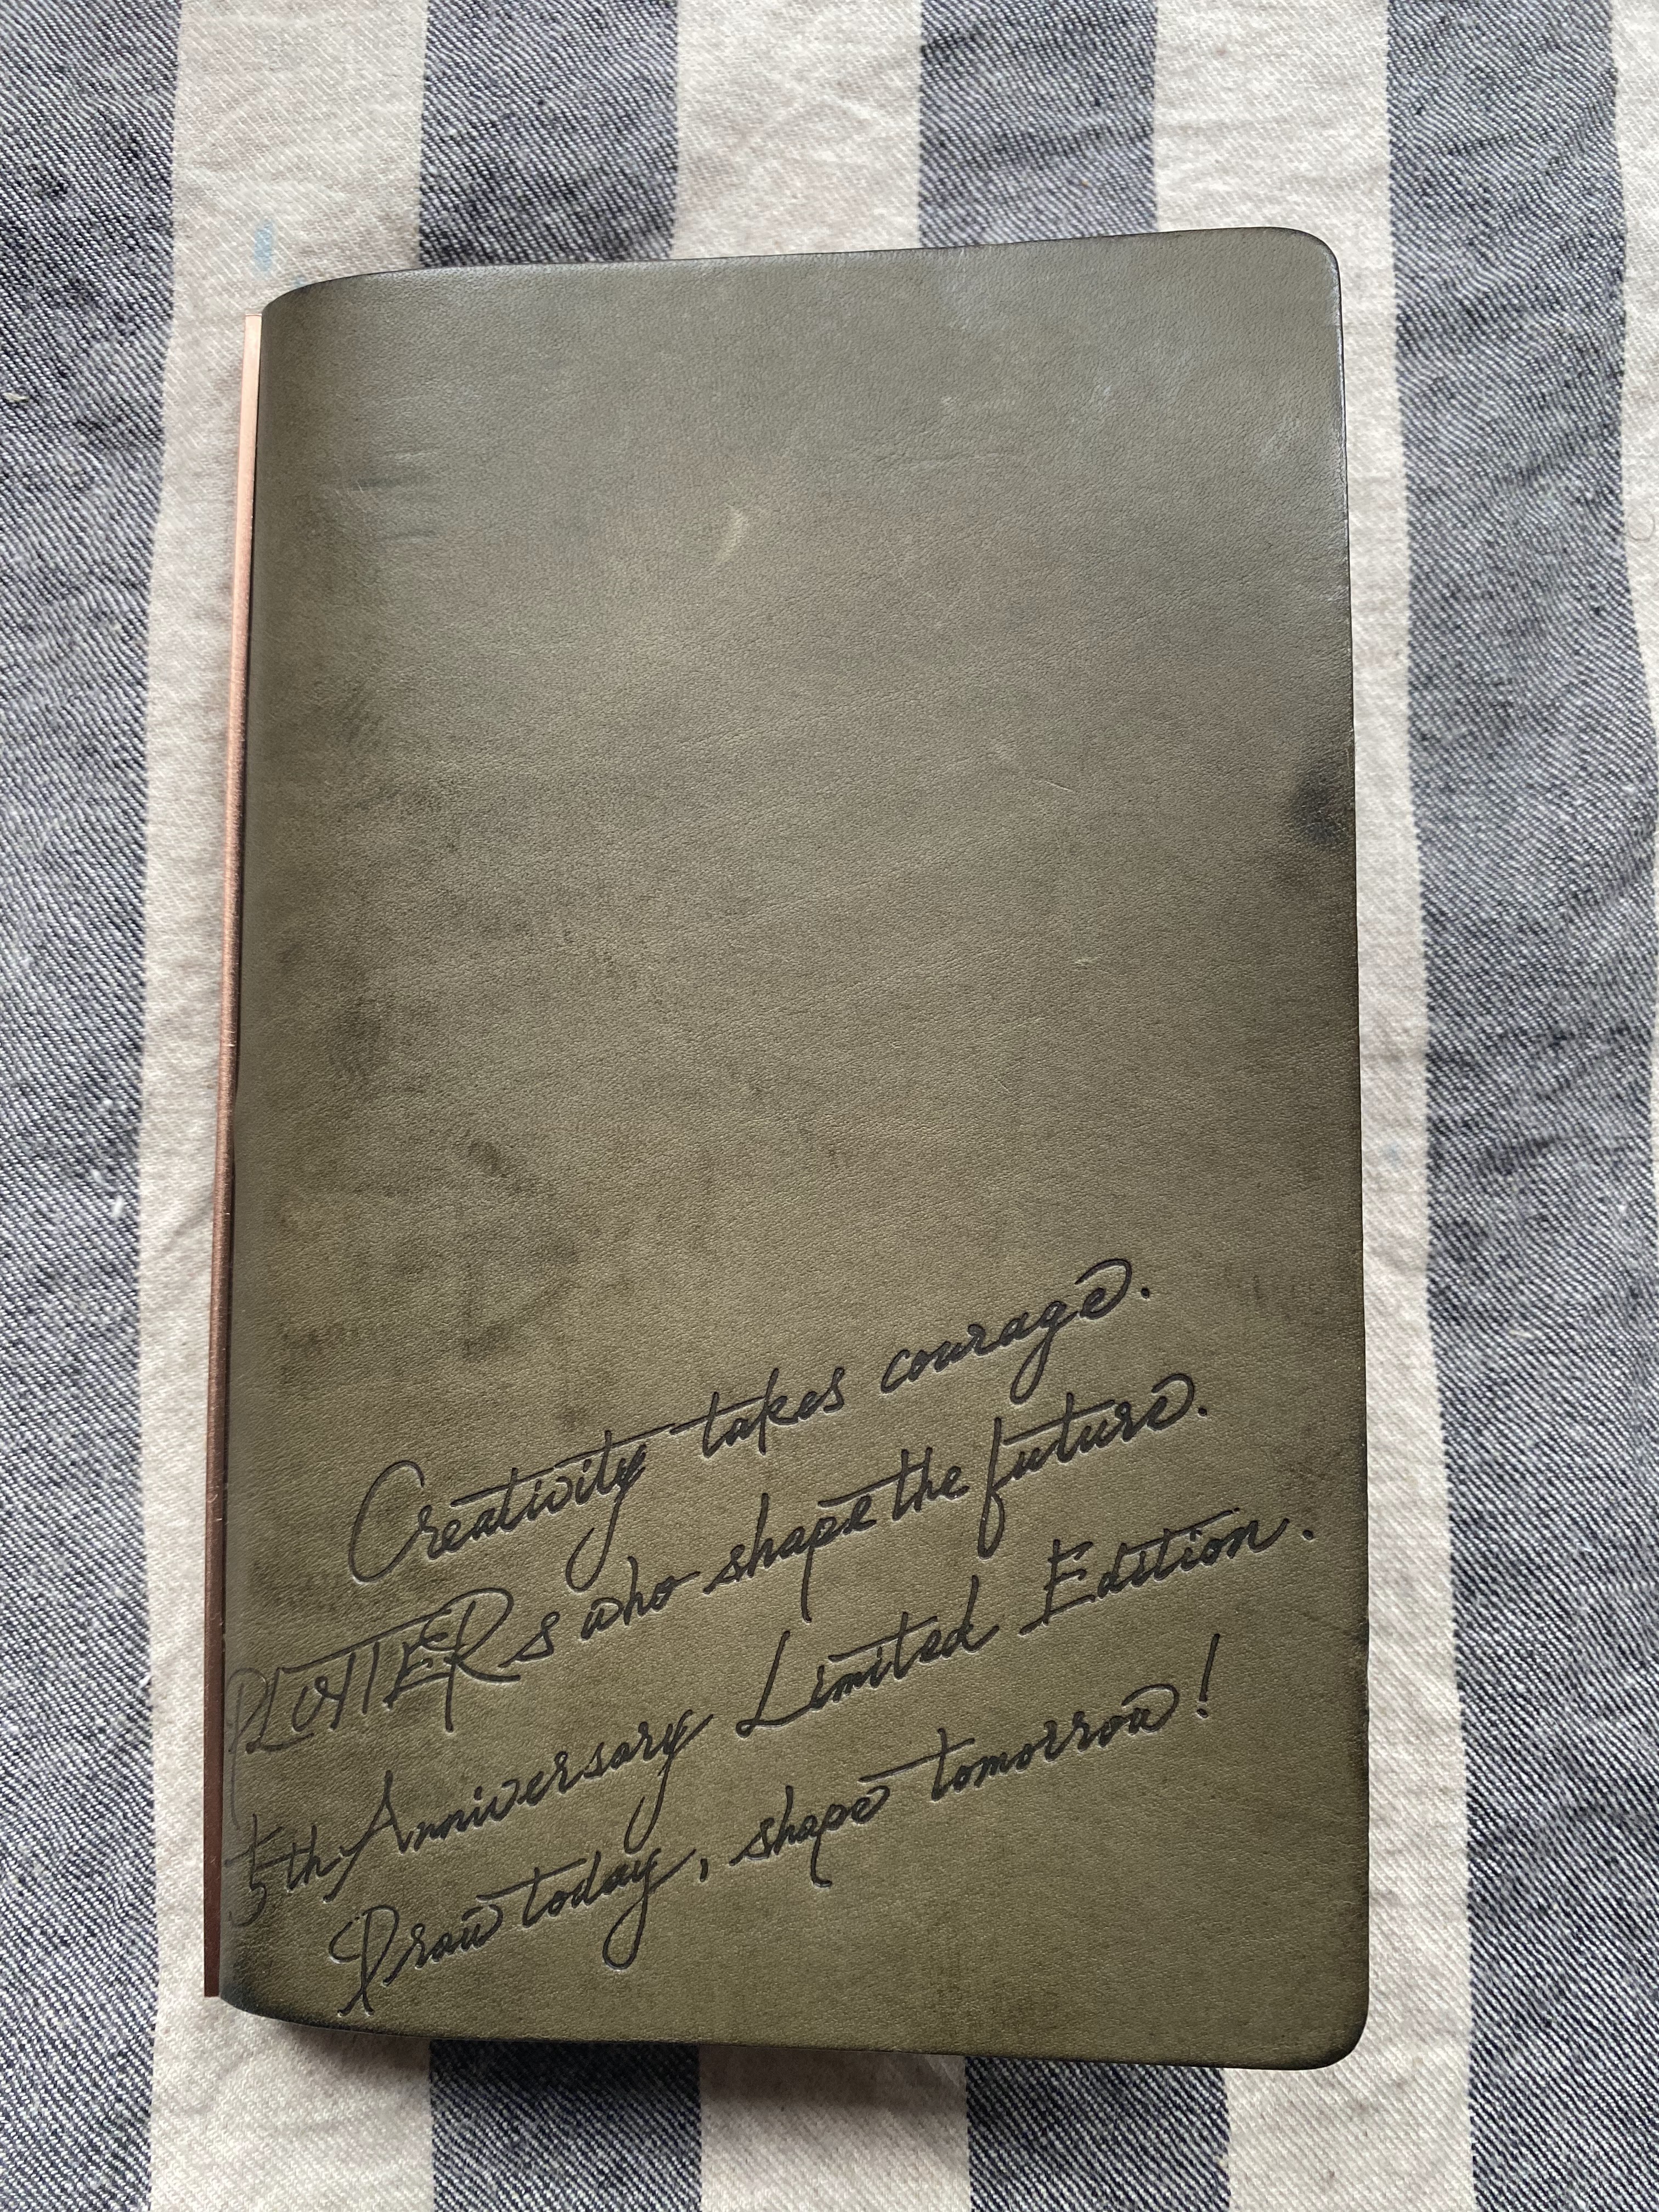 Creativity takes courage.
PLOTTERs who shape the future.
5th Anniversary Limited Edition.
Draw today, shape tomorrow!